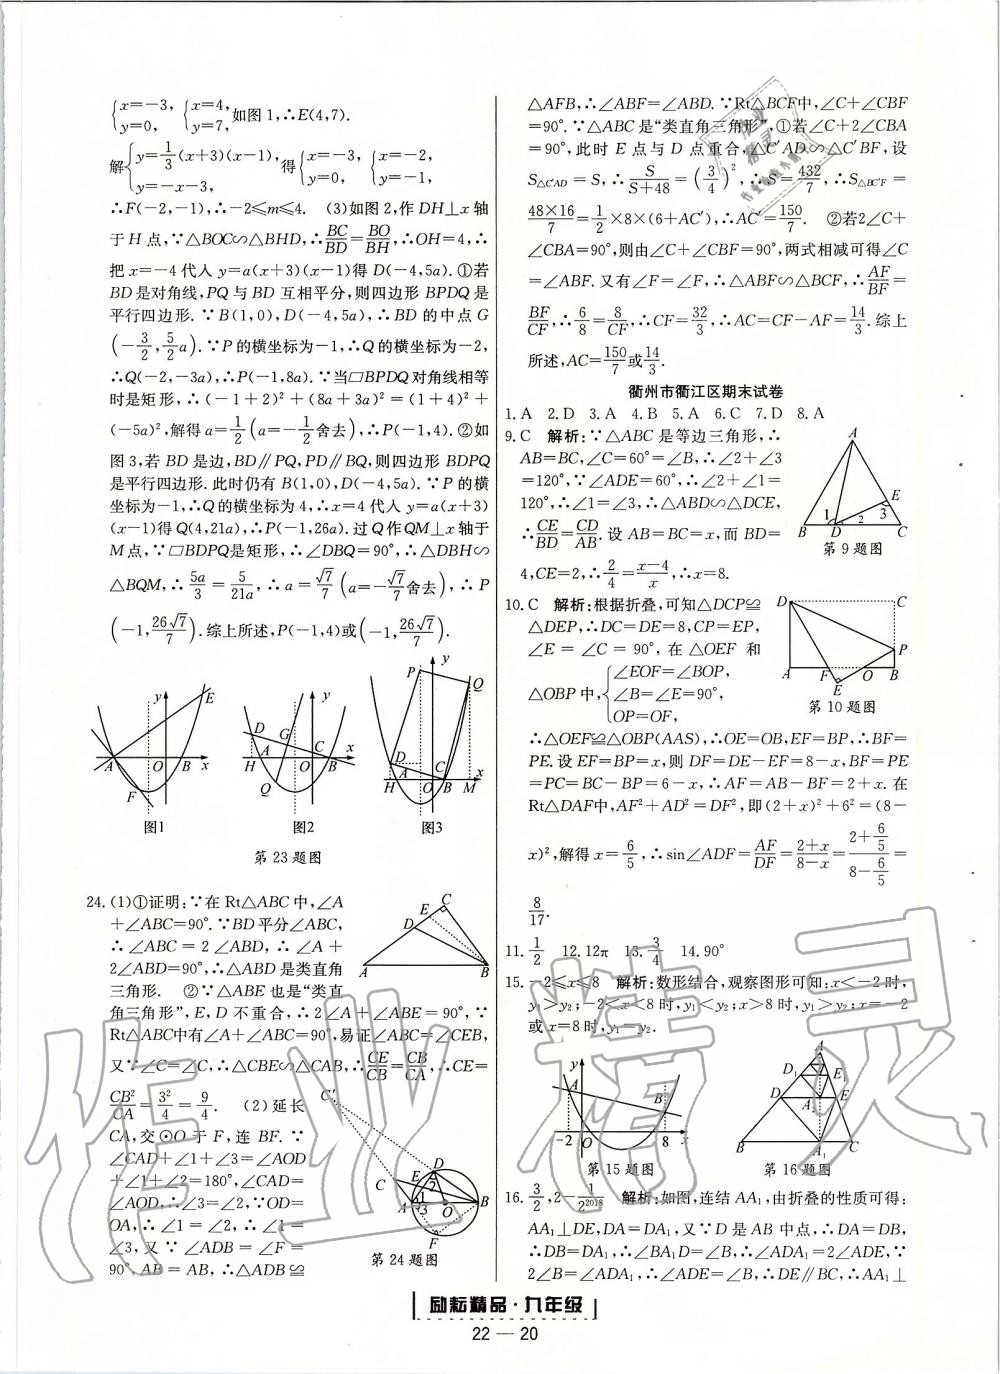 {x=-3, y=0, {x=4, y=7, 如图1,∴E(4,7).
解{y=1/3(x+3)(x-1), y=-x-3, 得{x=-3, y=0, {x=-2, y=-1,
∴F(-2,-1),∴-2≤m≤4. (3)如图2,作DH⊥x轴
于H点,∵△BOC∽△BHD,∴BC/BD=BO/BH,∴OH=4,∴
把x=-4代人y=a(x+3)(x-1)得D(-4,5a).①若
BD是对角线,PQ与BD互相平分,则四边形BPDQ是
平行四边形.∵B(1,0),D(-4,5a),∴BD的中点G
(-3/2,5/2a).∵P的横坐标为-1,∴Q的横坐标为-2,
∴Q(-2,-3a),∴P(-1,8a).∵当□BPDQ对角线相等
时是矩形,∴(-1+2)²+(8a+3a)²=(1+4)²+
(-5a)²,解得a=1/2(a=-1/2舍去),∴P(-1,4).②如
图3,若BD是边,BD∥PQ,PD∥BQ,则四边形BDPQ
是平行四边形.此时仍有B(1,0),D(-4,5a).∵P的横
坐标为-1,∴Q的横坐标为4,∴x=4代人y=a(x+3)
(x-1)得Q(4,21a),∴P(-1,26a).过Q作QM⊥x轴于
M点,∵□BDPQ是矩形,∴∠DBQ=90°,∴△DBH∽
△BQM,∴5a/3=5/21a,∴a=√7/7(a=-√7/7舍去),∴P
(-1,26√7/7).综上所述,P(-1,4)或(-1,26√7/7).
图1 图2 图3
第23题图
24.(1)①证明:∵在Rt△ABC中,∠A
+∠ABC=90°.∵BD平分∠ABC,
∴∠ABC=2∠ABD,∴∠A+
2∠ABD=90°,∴△ABD是类直角
三角形. ②∵△ABE也是“类直
角三角形”,E,D不重合,∴2∠A+∠ABE=90°,∵
Rt△ABC中有∠A+∠ABC=90°,易证∠ABC=∠CEB,
又∵∠C=∠C,∴△CBE∽△CAB,∴CE/CB=CB/CA,∴CE=
CB²/CA=3²/4=9/4. (2)延长
CA,交⊙O于F,连BF.∵
∠CAD+∠1+∠3=∠AOD
+∠1+∠2=180°,∠CAD=
∠AOD,∴∠3=∠2,∵OD=
OA,∴∠1=∠2,∴∠1=
∠3,又∵∠ADB=∠F=
90°,AB=AB,∴△ADB≌
第24题图
△AFB,∴∠ABF=∠ABD.∵Rt△BCF中,∠C+∠CBF
=90°.∵△ABC是“类直角三角形”,①若∠C+2∠CBA
=90°,此时E点与D点重合,△C′AD∽△C′BF,设
S△C′AD=S,∴S/S+48=(3/4)²,∴S=432/7,∴S△BC′F=
48×16/7=1/2×8×(6+AC′),∴AC′=150/7. ②若2∠C+
∠CBA=90°,则由∠C+∠CBF=90°,两式相减可得∠C
=∠ABF.又有∠F=∠F,∴△ABF∽△BCF,∴AF/BF=
BF/CF,∴6/8=8/CF,∴CF=32/3,∴AC=CF-AF=14/3.综上
所述,AC=150/7或14/3.
衢州市衢江区期末试卷
1.A 2.D 3.A 4.B 5.A 6.C 7.D 8.A
9.C 解析:∵△ABC是等边三角形,∴
AB=BC,∠C=60°=∠B,∴∠2+∠3
=120°,∵∠ADE=60°,∴∠2+∠1=
120°,∴∠1=∠3,∴△ABD∽△DCE,
∴CE/BD=CD/AB.设AB=BC=x,而BD=
4,CE=2,∴2/4=x-4/x,∴x=8.
第9题图
10.C 解析:根据折叠,可知△DCP≌
△DEP,∴DC=DE=8,CP=EP,
∠E=∠C=90°,在△OEF和
△OBP中,{∠EOF=∠BOP, ∠B=∠E=90°, OP=OF,
第10题图
∴△OEF≌△OBP(AAS),∴OE=OB,EF=BP,∴BF=
PE.设EF=BP=x,则DF=DE-EF=8-x,BF=PE
=PC=BC-BP=6-x,∴AF=AB-BF=2+x.在
Rt△DAF中,AF²+AD²=DF²,即(2+x)²+6²=(8-
x)²,解得x=6/5,∴sin∠ADF=AF/DF=2+x/8-x=(2+6/5)/(8-6/5)=
8/17.
11.1/2 12.12π 13.3/4 14.90°
15.-2≤x≤8 解析:数形结合,观察图形可知:x<-2时,
y₁>y₂;-2<x<8时,y₁<y₂;x>8时,y₁>y₂,x=-2
或x=8时,y₁=y₂.
第15题图 第16题图
16.3/2,2-1/2²⁰¹⁸ 解析:如图,连结AA₁,由折叠的性质可得:
AA₁⊥DE,DA=DA₁,又∵D是AB中点,∴DA=DB,
∴DB=DA₁,∴∠BA₁D=∠B,∴∠ADA₁=2∠ADE,∵
∠B=∠ADA₁,∴∠ADE=∠B,∴DE∥BC,∴AA₁⊥
励耘精品·九年级
22—20
作业精灵